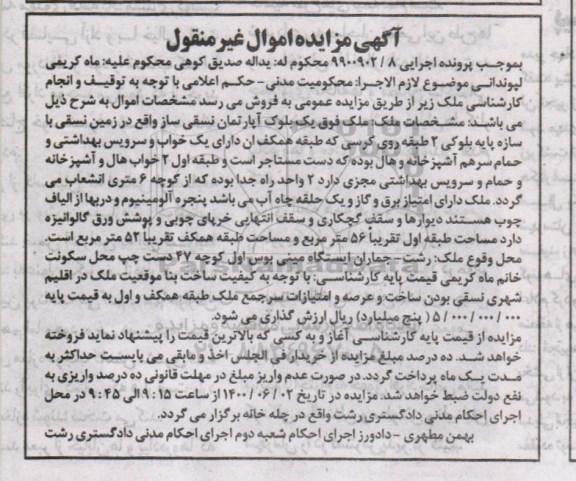 آگهی مزایده اموال غیر منقول
بموجب پرونده اجرایی ۸ / ۹۹۰۰۹۰۲ محکوم له: یداله صدیق کوهی محکوم علیه: ماه کریفی
لپوندانی موضوع لازم الاجرا: محکومیت مدنی - حکم اعلامی با توجه به توقیف و انجام
کارشناسی ملک زیر از طریق مزایده عمومی به فروش می رسد مشخصات اموال به شرح ذیل
می باشد: مشخصات ملک: ملک فوق یک بلوک آپارتمان نسقی ساز واقع در زمین نسقی با
سازه پایه بلوکی ۲ طبقه روی کرسی که طبقه همکف ان دارای یک خواب و سرویس بهداشتی و
حمام سرهم آشپزخانه و هال بوده که دست مستاجر است و طبقه اول ۲ خواب هال و آشپزخانه
و حمام و سرویس بهداشتی مجزی دارد ۲ واحد راه جدا بوده که از کوچه ۶ متری انشعاب می
گردد. ملک دارای امتیاز برق و گاز و یک حلقه چاه آب می باشد پنجره آلومینیوم و دربها از الیاف
چوب هستند دیوارها و سقف گچکاری و سقف انتهایی خرپای چوبی و پوشش ورق گالوانیزه
دارد مساحت طبقه اول تقریباً ۵۶ متر مربع و مساحت طبقه همکف تقریباً ۵۲ متر مربع است.
محل وقوع ملک: رشت - جماران ایستگاه مینی بوس اول کوچه ۴۷ دست چپ محل سکونت
خانم ماه کریمی قیمت پایه کارشناسی: با توجه به کیفیت ساخت بنا موقعیت ملک در اقلیم
شهری نسقی بودن ساخت و عرصه و امتیازات سرجمع ملک طبقه همکف و اول به قیمت پایه
۰۰۰ / ۰۰۰ / ۰۰۰ / ۵ ( پنج میلیارد) ریال ارزش گذاری می شود.
مزایده از قیمت پایه کارشناسی آغاز و به کسی که بالاترین قیمت را پیشنهاد نماید فروخته
خواهد شد. ده درصد مبلغ مزایده از خریدار فی المجلس اخذ و مابقی می بایست حداکثر به
مدت یک ماه پرداخت گردد. در صورت عدم واریز مبلغ در مهلت قانونی ده درصد واریزی به
نفع دولت ضبط خواهد شد. مزایده در تاریخ ۰۲ / ۰۶ / ۱۴۰۰ از ساعت ۹:۱۵ الی ۹:۴۵ در محل
اجرای احکام مدنی دادگستری رشت واقع در چله خانه برگزار می گردد.
بهمن مطهری - دادورز اجرای احکام شعبه دوم اجرای احکام مدنی دادگستری رشت